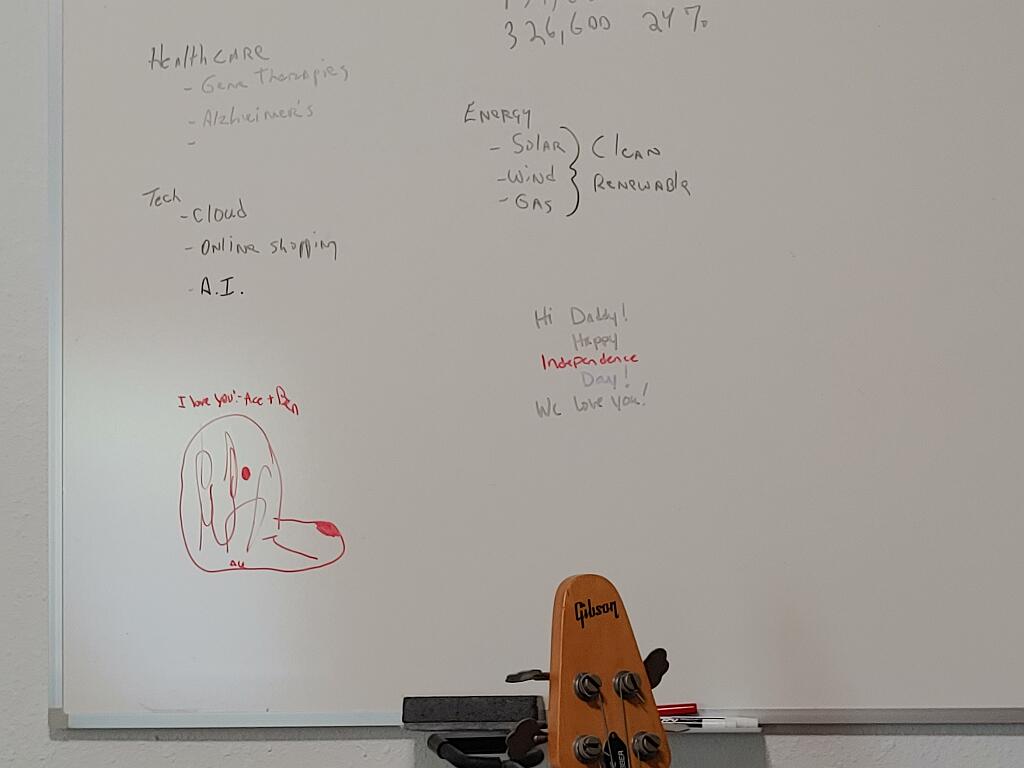 326,600 24%
HealthCARE
- Gene Therapies
- Alzheimer's
-
Tech
- Cloud
- Online shopping
- A.I.
ENERGY
- SOLAR
- Wind
- GAS
Clean
Renewable
Hi Daddy!
Happy
Independence
Day!
We love you!
I love you! - Ace + Ben
Gibson